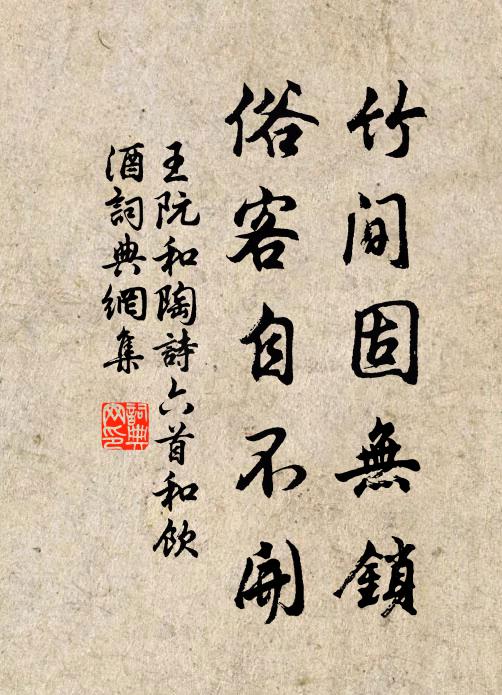 竹間固無鎖
俗客自不開
王阮和陶詩六首和飲
酒詞典網集
詞典
网印